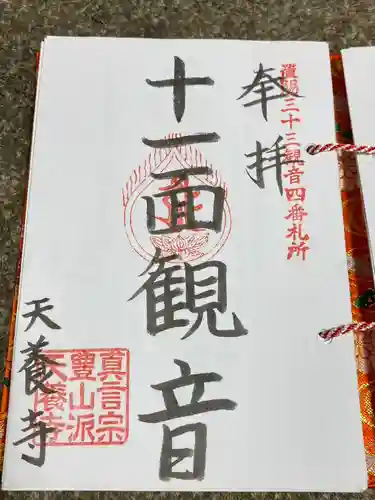 奉拝
置賜三十三観音四番札所
十一面観音
天養寺
真言宗
豐山派
天養寺